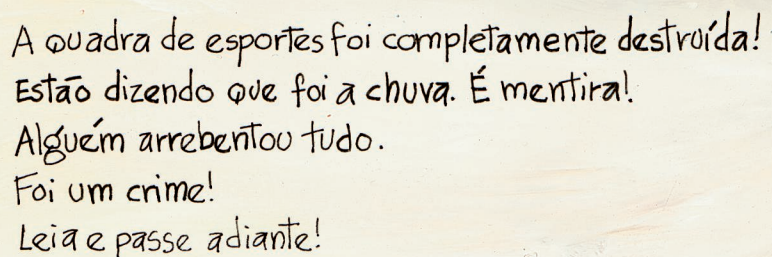 A quadra de esportes foi completamente destruída!
Estão dizendo que foi a chuva. É mentira!
Alguém arrebentou tudo.
Foi um crime!
Leia e passe adiante!